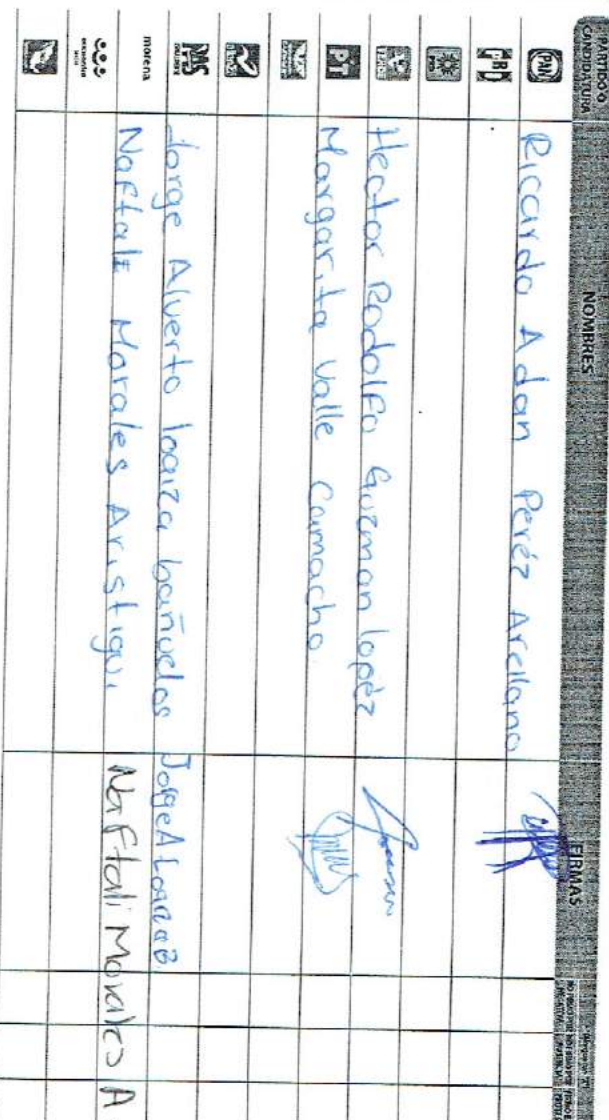 PARTIDO O CANDIDATURA NOMBRES FIRMAS
PAN Ricardo Adan Peréz Arellano
PRI
PRD
VERDE Hector Rodolfo Guzman lopéz
PT Margarita Valle Camacho
PAS Jorge Alverto loaiza bañuelos JorgeALoaizaB.
morena Naftali Morales Aristigui Naftali Morales A
encuentro